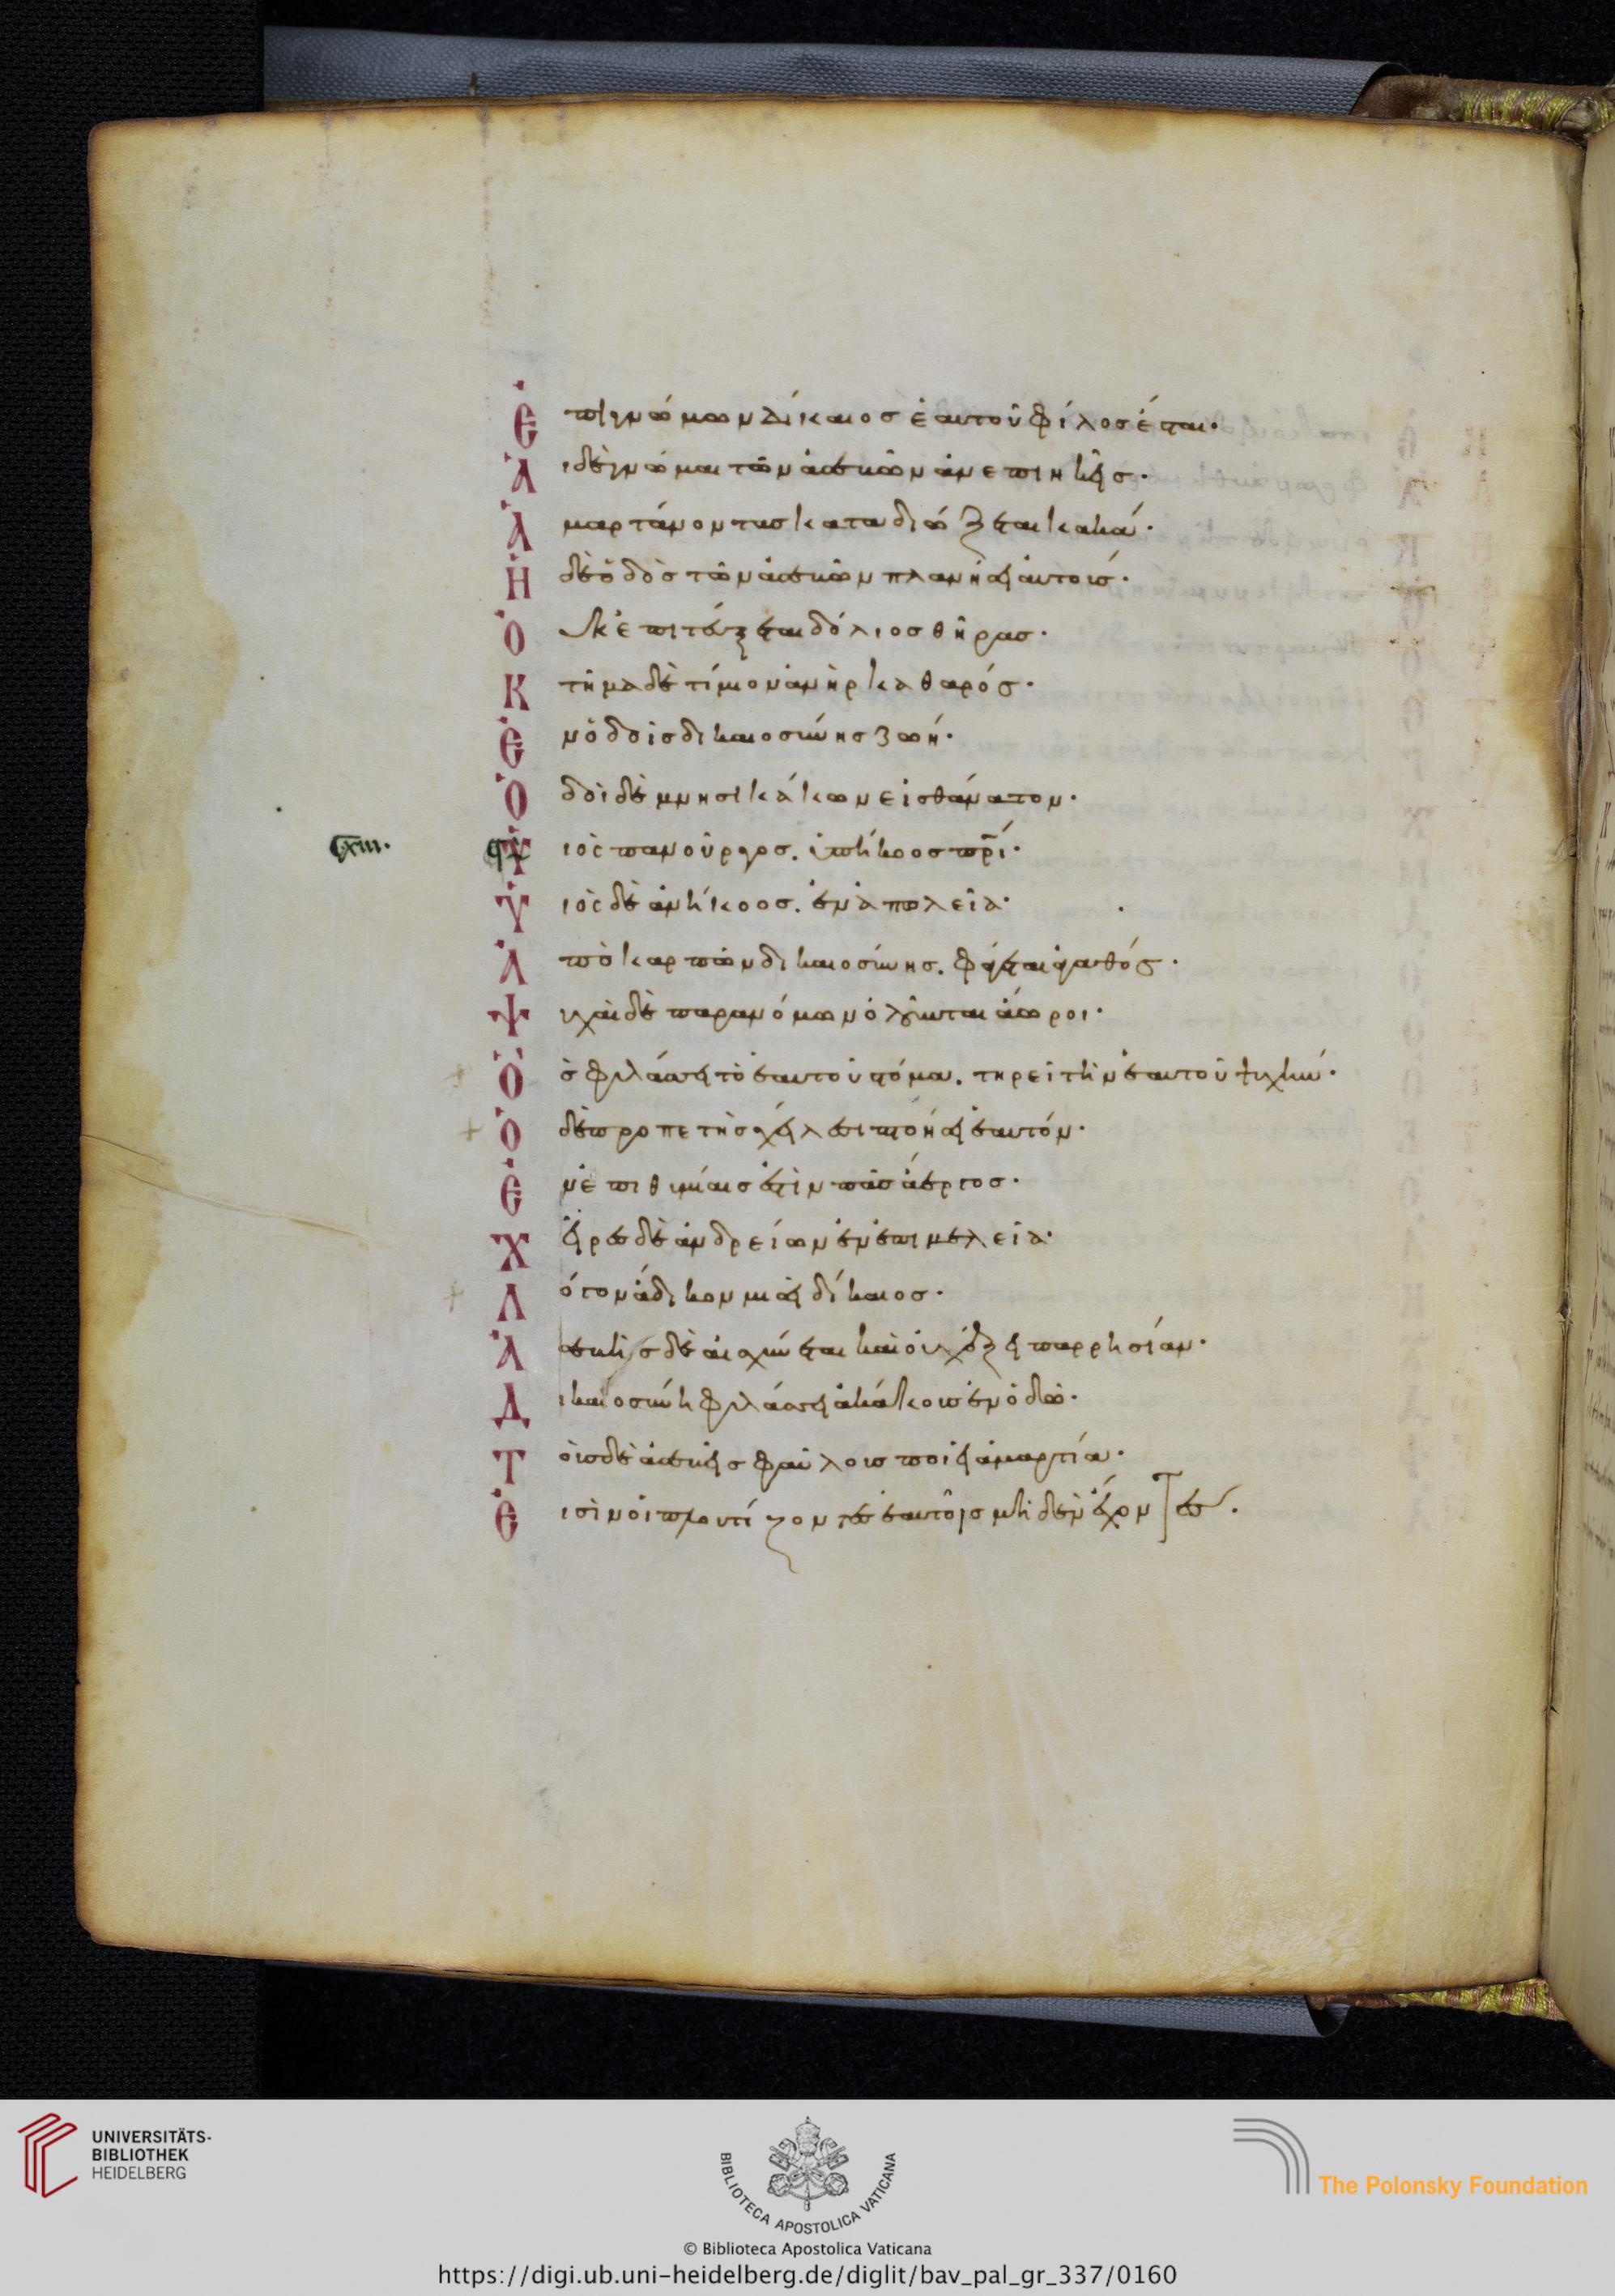 Ἐπιγνώμων δίκαιος ἑαυτοῦ φίλος ἔσται·
Αἱ δὲ γνῶμαι τῶν ἀσεβῶν ἀνεπιεικεῖς·
Ἁμαρτάνοντας καταδιώξεται κακά·
Ἡ δὲ ὁδὸς τῶν ἀσεβῶν πλανήσει αὐτούς·
Οὐκ ἐπιτεύξεται δόλιος θήρας·
Κτῆμα δὲ τίμιον ἀνὴρ καθαρός·
Ἐν ὁδοῖς δικαιοσύνης ζωή·
Ὁδοὶ δὲ μνησικάκων εἰς θάνατον·
cxiii.
Υἱὸς πανοῦργος. ὑπήκοος πρι·
Υἱὸς δὲ ἀνήκοος. ἐν ἀπωλείᾳ·
Ἀπὸ καρπῶν δικαιοσύνης. φάγεται ἀγαθός·
Ψυχαὶ δὲ παρανόμων ὀλοῦνται ἄωροι·
Ὃς φυλάσσει τὸ ἑαυτοῦ στόμα. τηρεῖ τὴν ἑαυτοῦ ψυχήν·
Ὁ δὲ προπετὴς χείλεσι πτοήσει ἑαυτόν·
Ἐν ἐπιθυμίαις ἐστὶν πᾶς ἀεργός·
Χεῖρες δὲ ἀνδρείων ἐν ἐπιμελείᾳ·
Λόγον ἄδικον μισεῖ δίκαιος·
Ἀσεβὴς δὲ αἰσχύνεται καὶ οὐχ ἕξει παρρησίαν·
Δικαιοσύνη φυλάσσει ἀκάκους ἐν ὁδῷ·
Τοὺς δὲ ἀσεβεῖς φαύλους ποιεῖ ἁμαρτία·
Εἰσὶν οἱ πλουτίζοντες ἑαυτοὺς μηδὲν ἔχοντες·
UNIVERSITÄTS-
BIBLIOTHEK
HEIDELBERG
BIBLIOTECA APOSTOLICA VATICANA
The Polonsky Foundation
© Biblioteca Apostolica Vaticana
https://digi.ub.uni-heidelberg.de/diglit/bav_pal_gr_337/0160